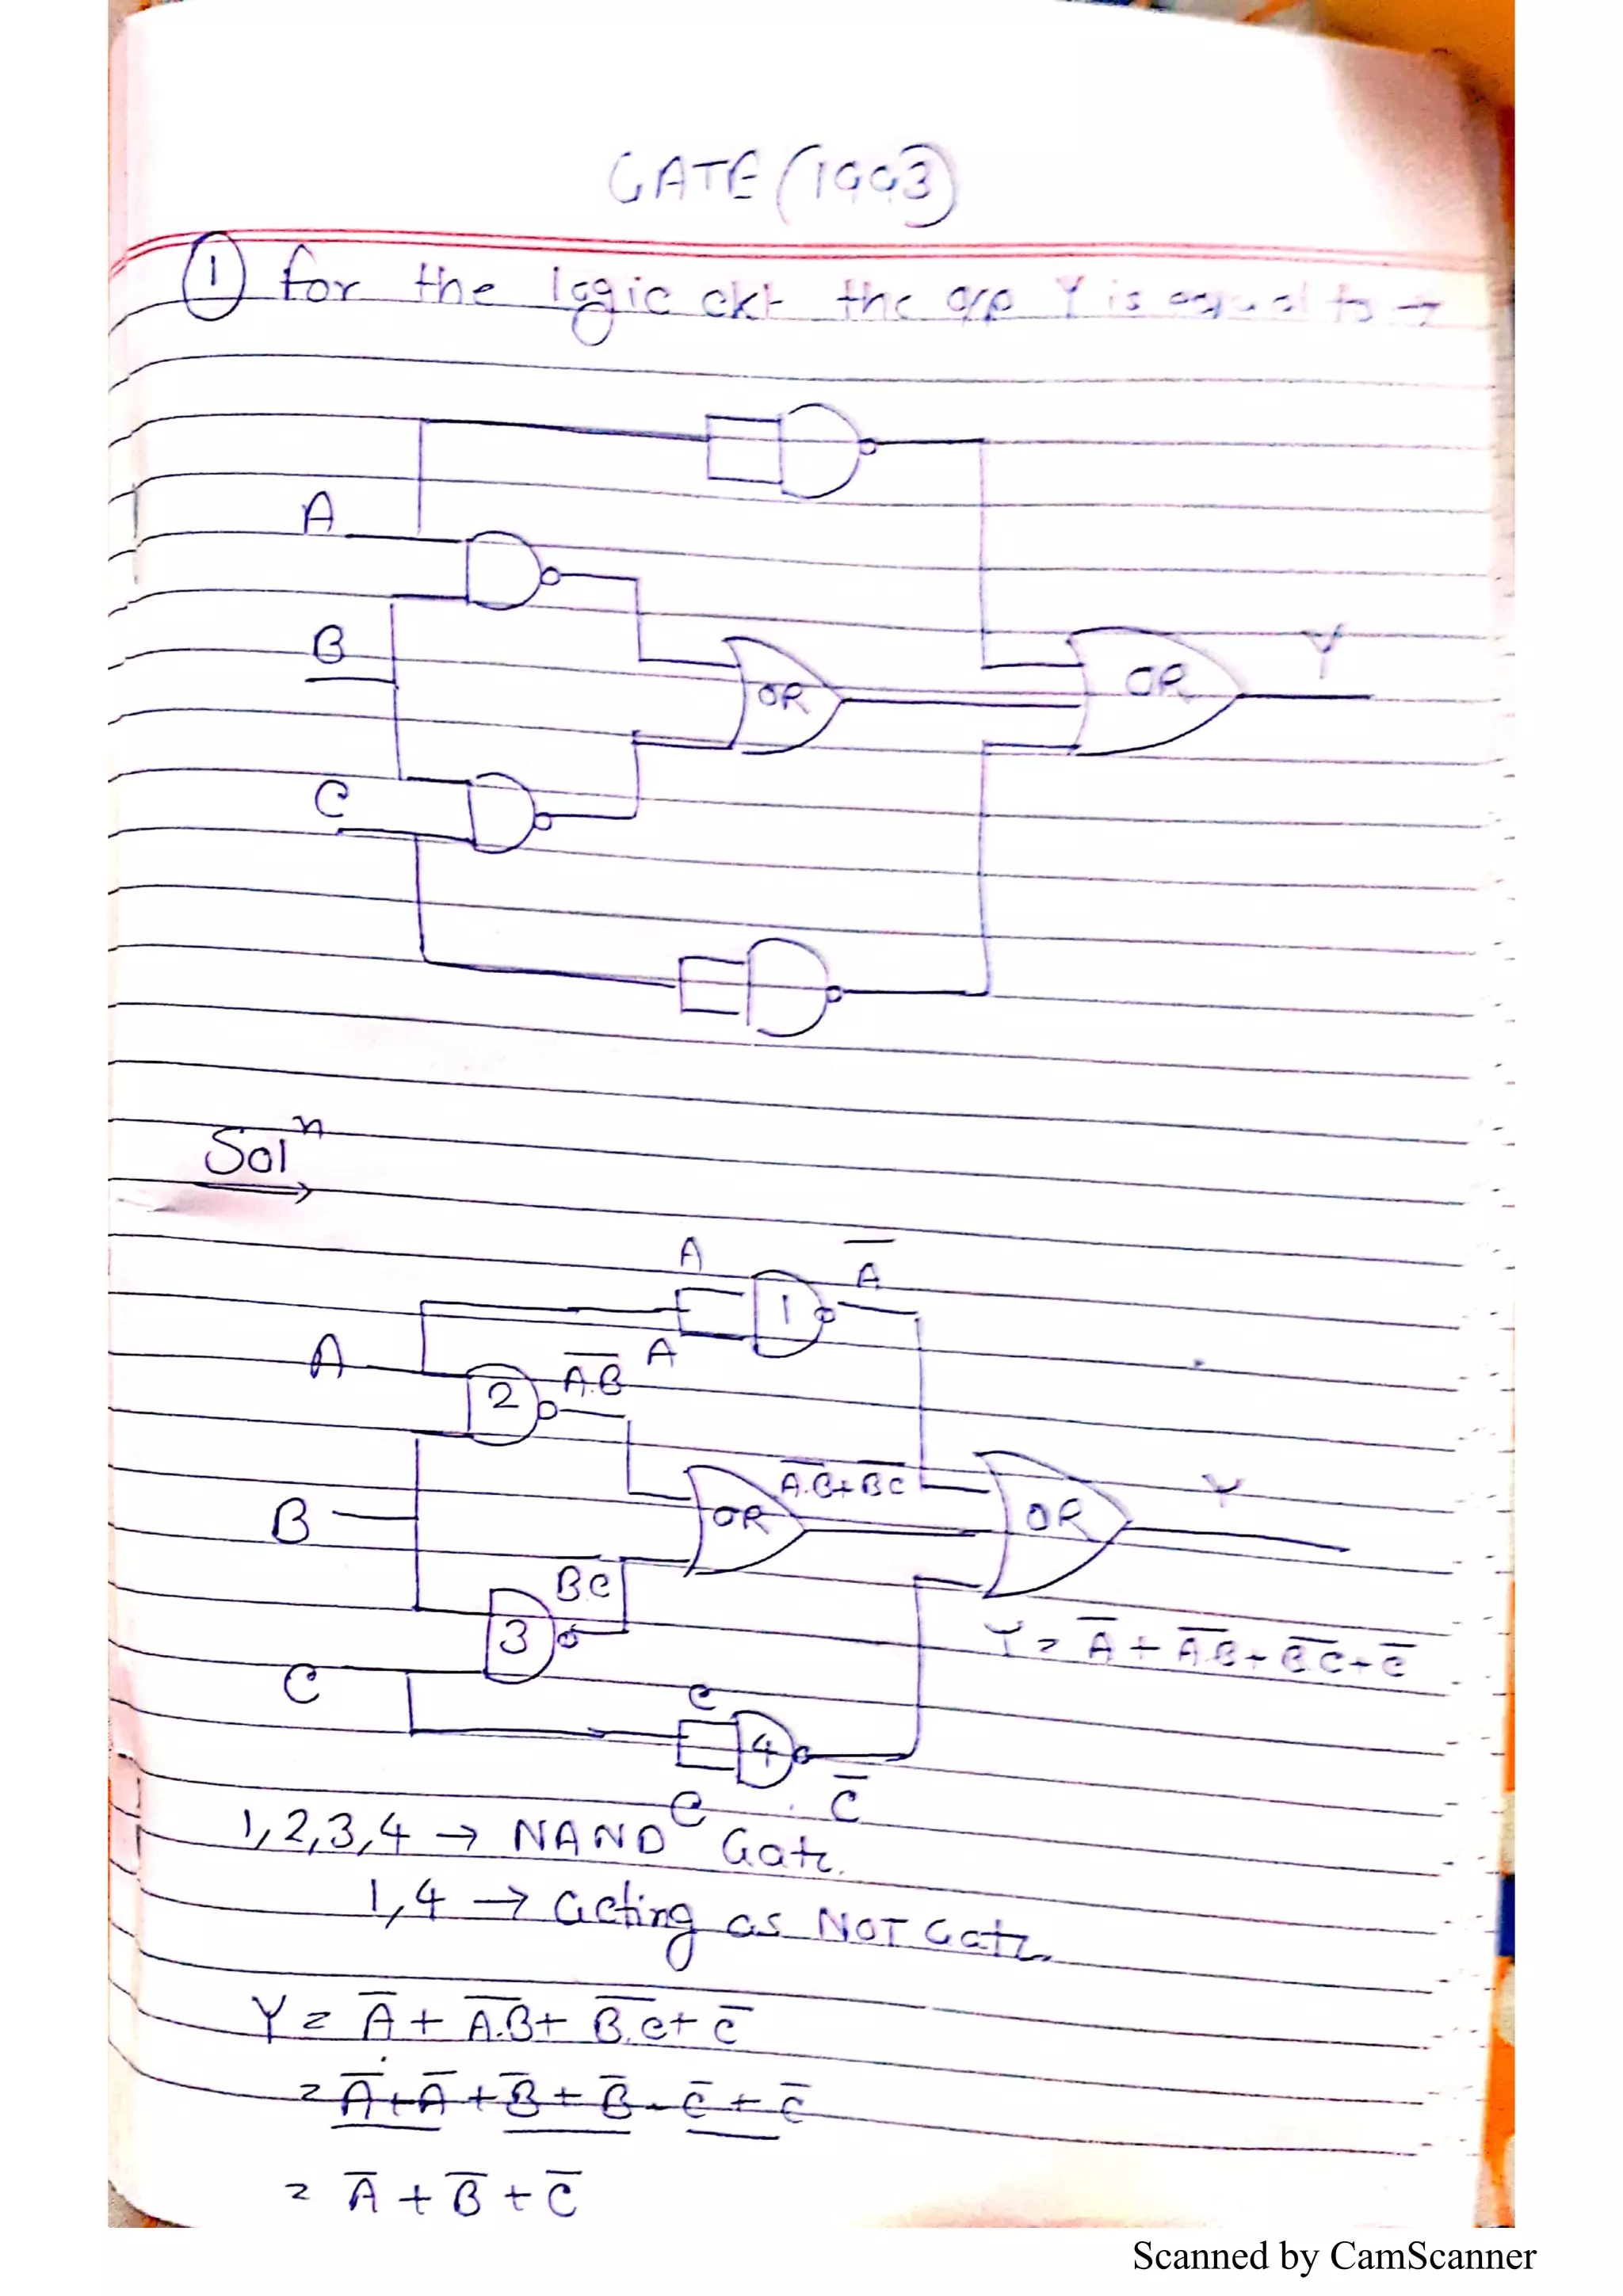 GATE (1993)
① for the logic ckt the o/p Y is equal to →
A
B
OR
OR
Y
C
Solⁿ
A
A̅
1
A
A
2
A̅.̅B̅
A̅.̅B̅+B̅C̅
Y
B
OR
OR
BC
3
Y = A̅ + A̅.̅B̅ + B̅C̅ + C̅
C
C
4
C
C̅
1,2,3,4 → NAND Gate.
1,4 → acting as NOT Gate.
Y = A̅ + A̅.̅B̅ + B̅.̅C̅ + C̅
= A̅ + A̅ + B̅ + B̅ - C̅ + C̅
= A̅ + B̅ + C̅
Scanned by CamScanner